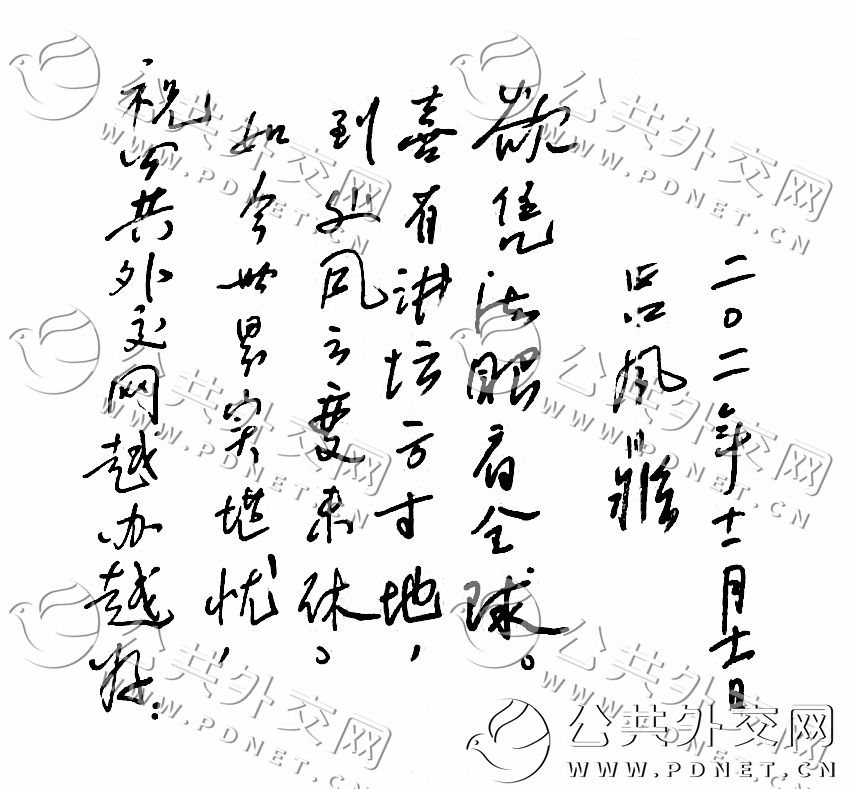 祝公共外交网越办越好:
如今世界实堪忧,
到处风云变未休。
喜有讲坛方寸地,
欲凭法眼看全球。
吕凤鼎
二〇一一年十二月十一日
公共外交网
WWW.PDNET.CN